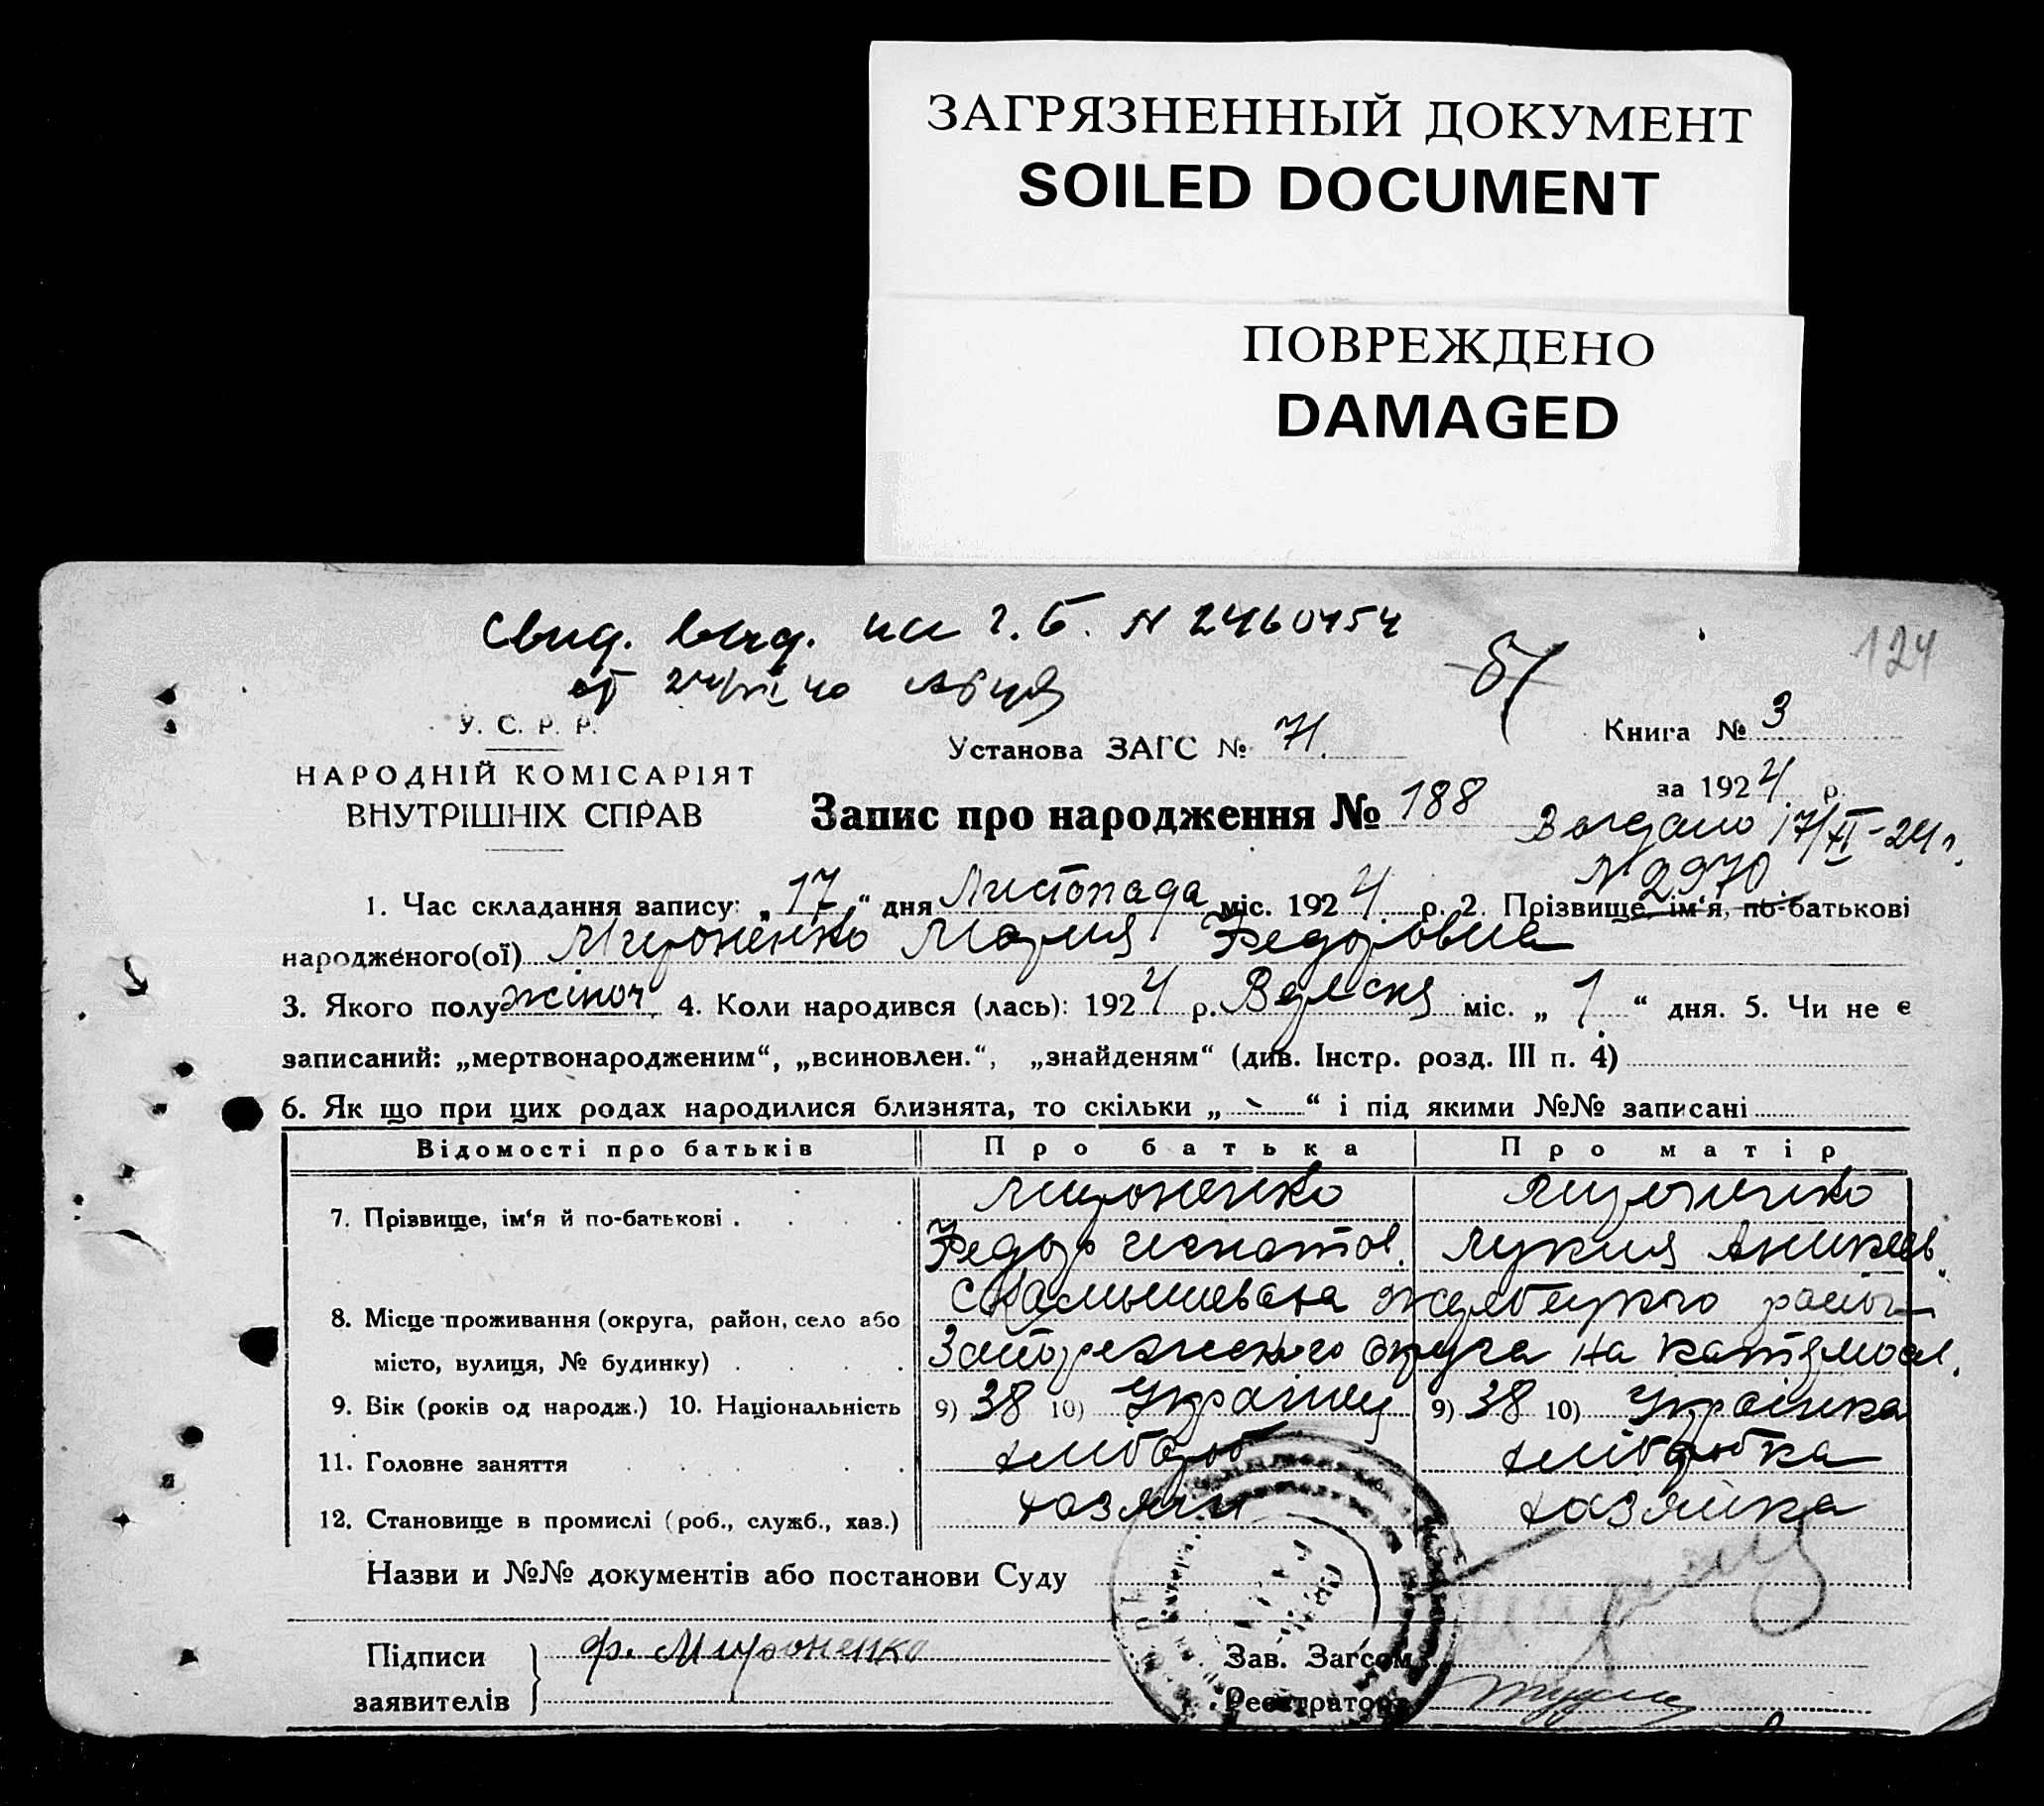 ЗАГРЯЗНЕННЫЙ ДОКУМЕНТ
SOILED DOCUMENT
ПОВРЕЖДЕНО
DAMAGED
Свид. выд. на г. б. N 2460454
от 24/ 40
124
У. С. Р. Р.
НАРОДНІЙ КОМІСАРІЯТ
ВНУТРІШНІХ СПРАВ
Установа ЗАГС № 71.
Книга № 3
за 1924 р.
Запис про народження № 188
Видано 17/XI-24 г.
N 2970
1. Час складання запису: „17“ дня Листопада міс. 1924 р. 2. Прізвище, ім‘я, по-батькові
народженого(ої) Мироненко Мария Федоровна
3. Якого полу жіноч. 4. Коли народився (лась): 1924 р. Вересня міс. „ 1 “ дня. 5. Чи не є
записаний: „мертвонародженим“, „всиновлен.“, „знайденям“ (див. Інстр. розд. III п. 4)
6. Як що при цих родах народилися близнята, то скільки „ - “ і під якими №№ записані
Відомості про батьків Про батька Про матір
7. Прізвище, ім‘я й по-батькові Мироненко Мироненко
Федор Игнатов. Лукия Аникеев.
8. Місце проживання (округа, район, село або С. Камышеваха Жеребецкого район
місто, вулиця, № будинку) Запорежского округа на Катериносл.
9. Вік (років од народж.) 10. Національність 9) 38 10) Українец 9) 38 10) Українка
11. Головне заняття хлібороб хліборобка
12. Становище в промислі (роб., служб., хаз.) хозяин хазяйка
Назви и №№ документів або постанови Суду
Підписи
заявителів
Ф. Мироненко
Зав. Загсом
Реєстратор